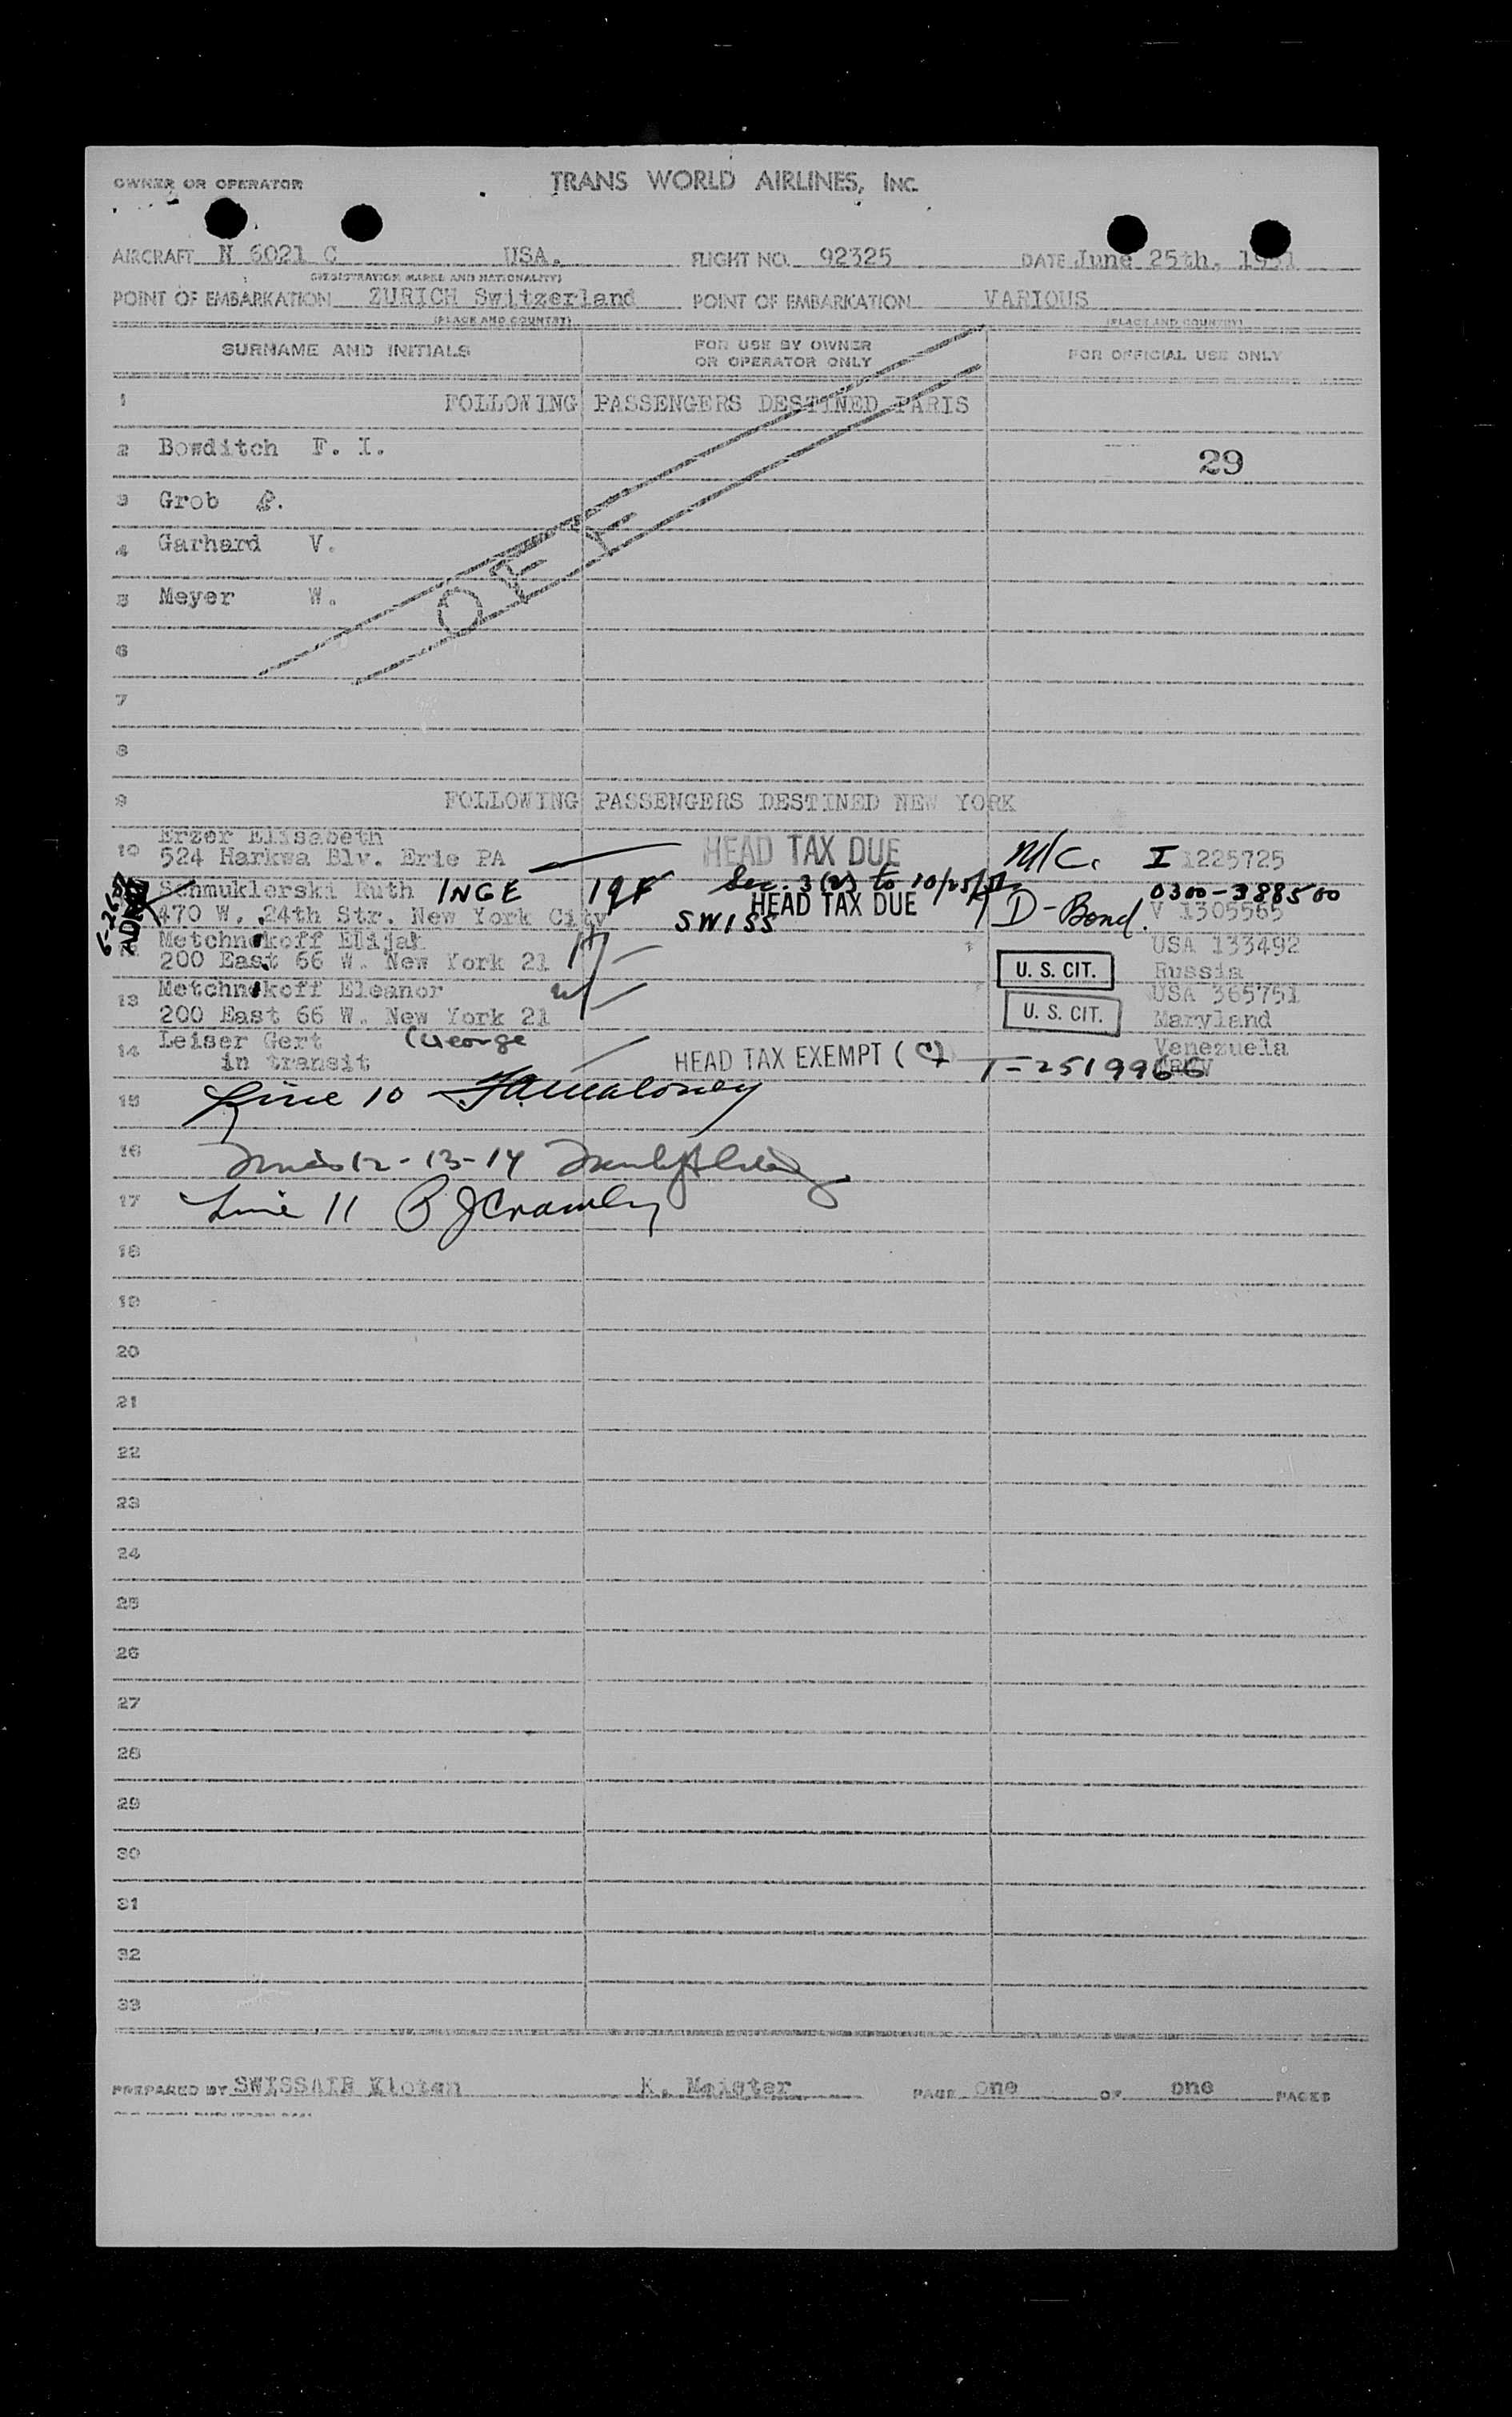 OWNER OR OPERATOR TRANS WORLD AIRLINES, INC.
AIRCRAFT N 6021 C USA. FLIGHT NO. 92325 DATE June 25th. 1951
(REGISTRATION MARKS AND NATIONALITY)
POINT OF EMBARKATION ZURICH Switzerland POINT OF EMBARKATION VARIOUS
(PLACE AND COUNTRY) (PLACE AND COUNTRY)
SURNAME AND INITIALS FOR USE BY OWNER OR OPERATOR ONLY FOR OFFICIAL USE ONLY
1 FOLLOWING PASSENGERS DESTINED PARIS
2 Bowditch F. I. 29
3 Grob
4 Garhard V.
5 Meyer W.
OFF
6
7
8
9 FOLLOWING PASSENGERS DESTINED NEW YORK
10 Erzer Elisabeth
524 Harkwa Blv. Erie PA HEAD TAX DUE M/C. I 1225725
Schmuklerski Ruth INGE 19F Sec. 3(2) to 10/25/51 0300-388500
470 W. 24th Str. New York City SWISS HEAD TAX DUE D-Bond. V 1305565
Metchnikoff Elijah USA 133492
200 East 66 W. New York 21 U. S. CIT. Russia
13 Metchnikoff Eleanor USA 365751
200 East 66 W. New York 21 U. S. CIT. Maryland
14 Leiser Gert (George Venezuela
in transit HEAD TAX EXEMPT (C) T-2519966
15 Line 10
16 Lines 12-13-14
17 Line 11
18
19
20
21
22
23
24
25
26
27
28
29
30
31
32
33
PREPARED BY SWISSAIR Kloten K. Meister PAGE one OF one PAGES